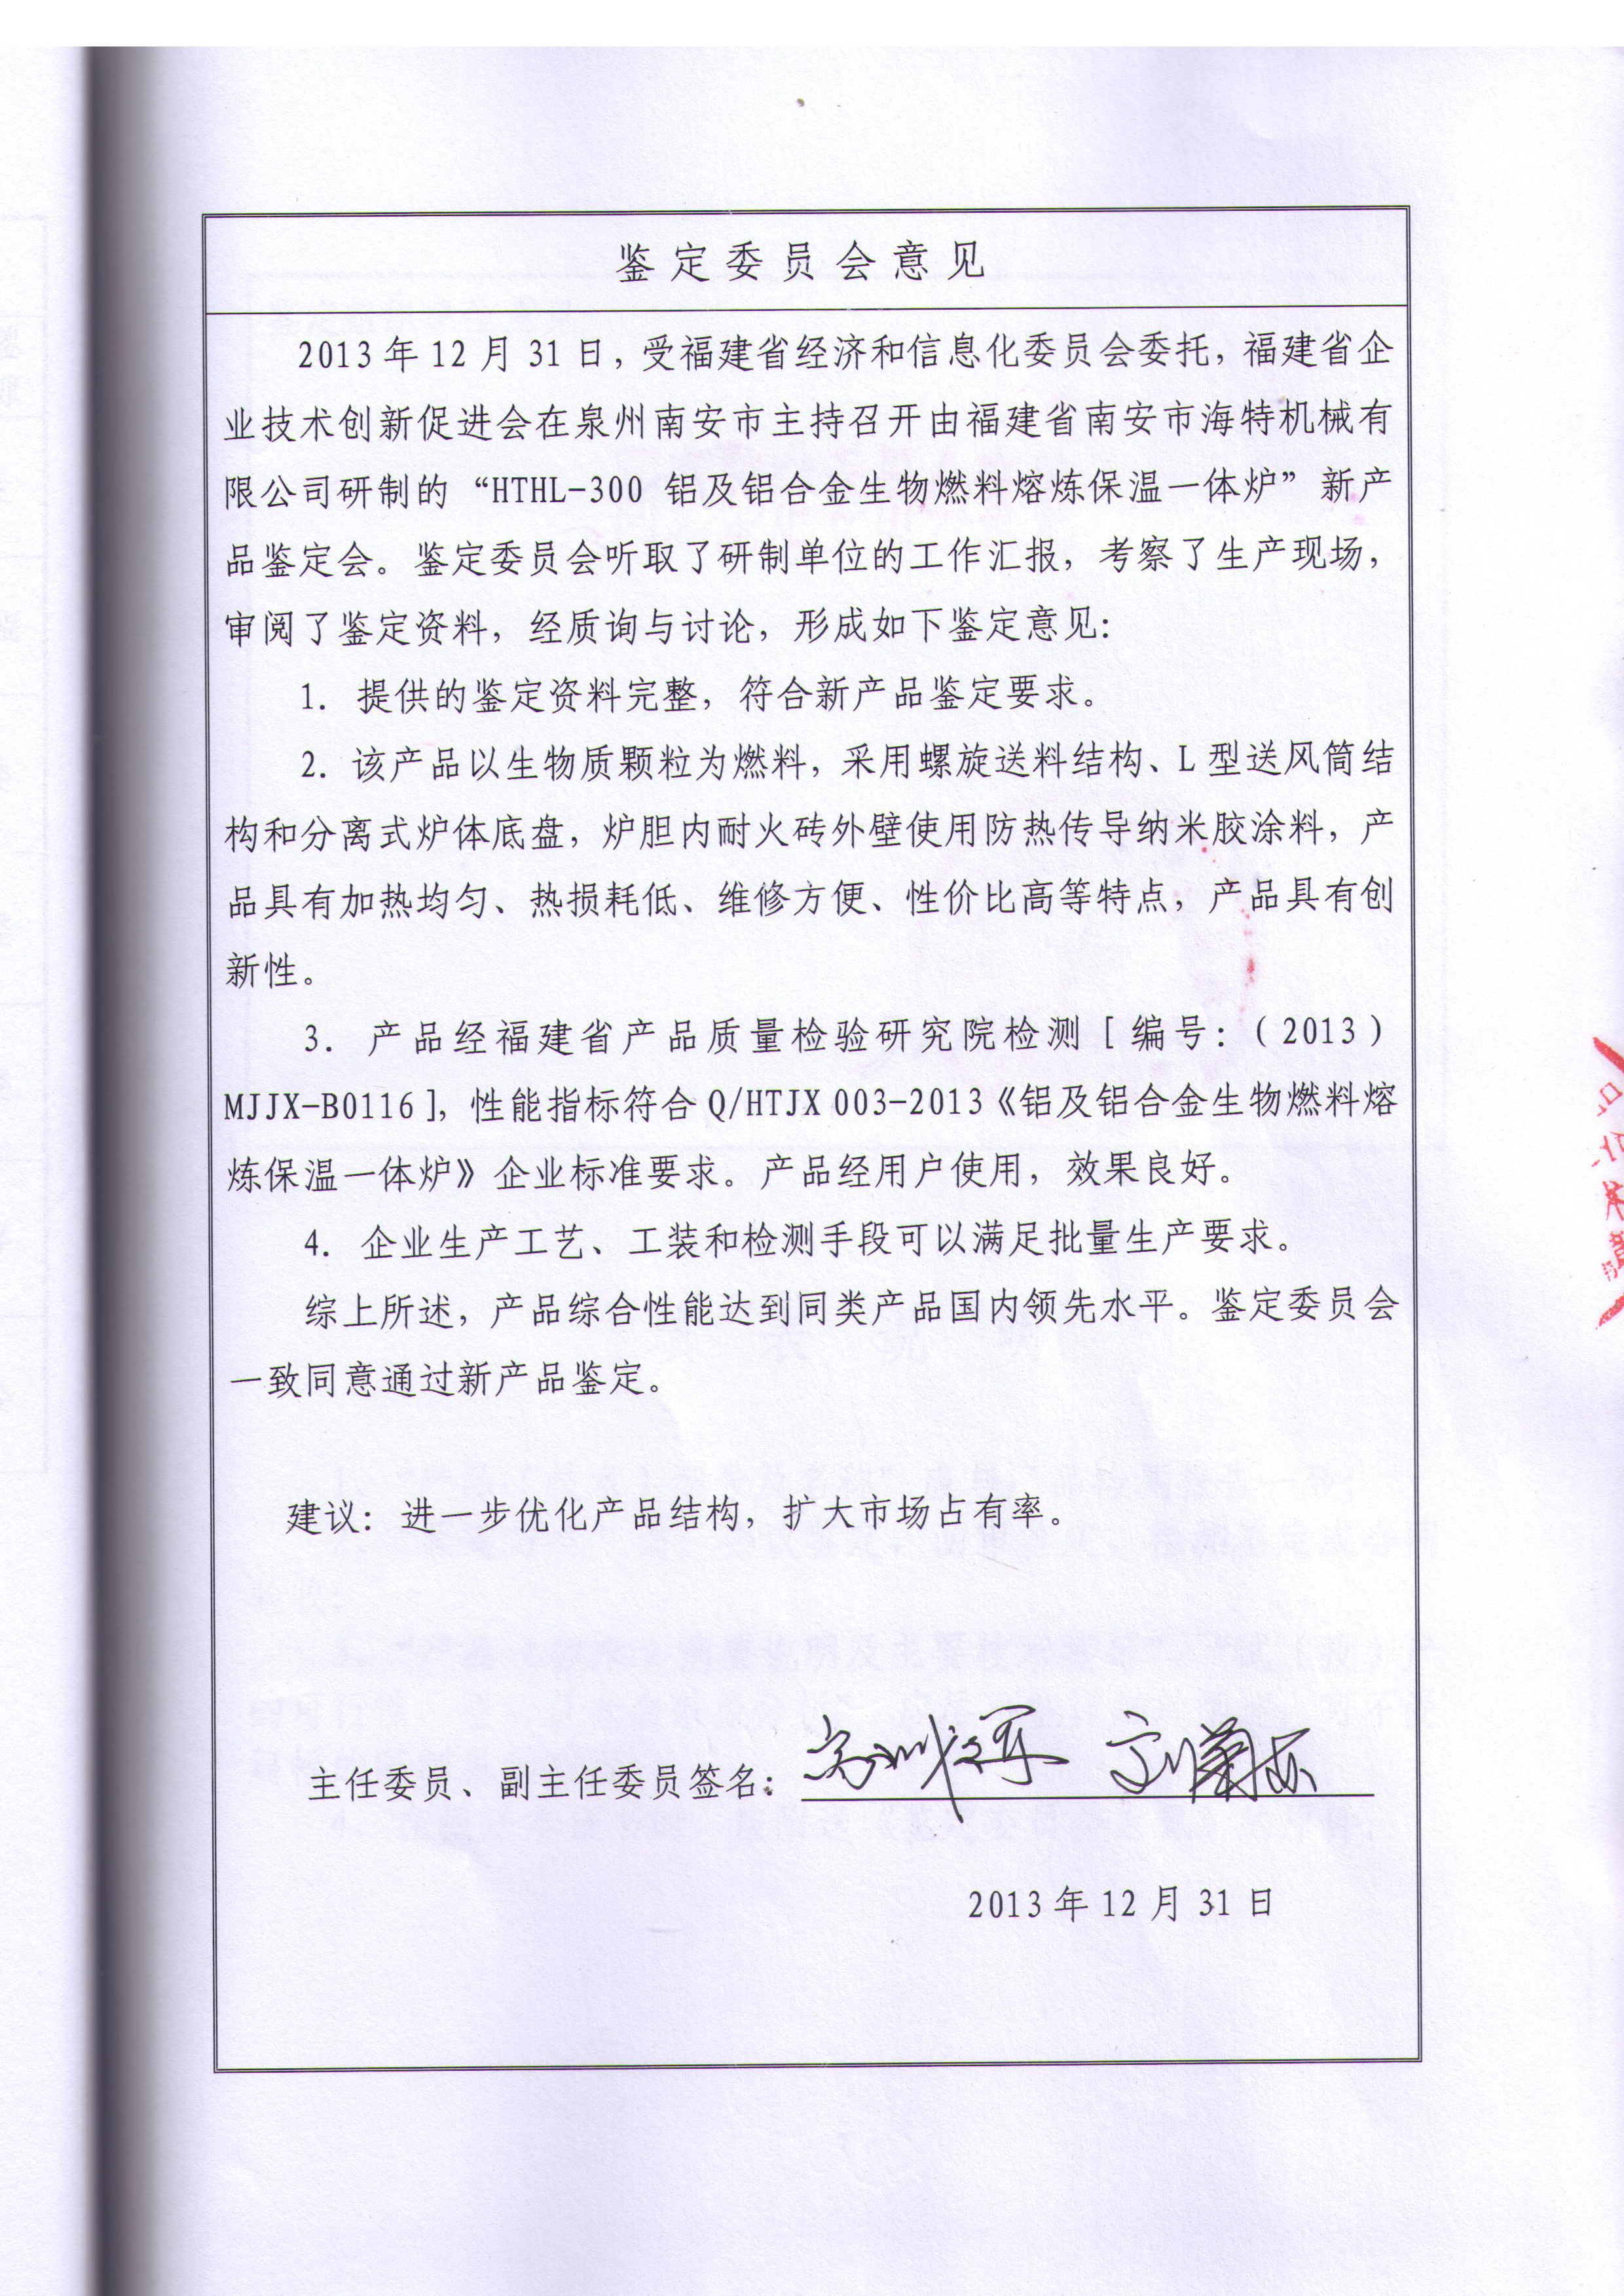 鉴定委员会意见
2013年12月31日，受福建省经济和信息化委员会委托，福建省企
业技术创新促进会在泉州南安市主持召开由福建省南安市海特机械有
限公司研制的“HTHL-300 铝及铝合金生物燃料熔炼保温一体炉”新产
品鉴定会。鉴定委员会听取了研制单位的工作汇报，考察了生产现场，
审阅了鉴定资料，经质询与讨论，形成如下鉴定意见：
1. 提供的鉴定资料完整，符合新产品鉴定要求。
2. 该产品以生物质颗粒为燃料，采用螺旋送料结构、L型送风筒结
构和分离式炉体底盘，炉胆内耐火砖外壁使用防热传导纳米胶涂料，产
品具有加热均匀、热损耗低、维修方便、性价比高等特点，产品具有创
新性。
3. 产品经福建省产品质量检验研究院检测[编号：(2013)
MJJX-B0116]，性能指标符合Q/HTJX 003-2013《铝及铝合金生物燃料熔
炼保温一体炉》企业标准要求。产品经用户使用，效果良好。
4. 企业生产工艺、工装和检测手段可以满足批量生产要求。
综上所述，产品综合性能达到同类产品国内领先水平。鉴定委员会
一致同意通过新产品鉴定。
建议：进一步优化产品结构，扩大市场占有率。
主任委员、副主任委员签名：
2013年12月31日